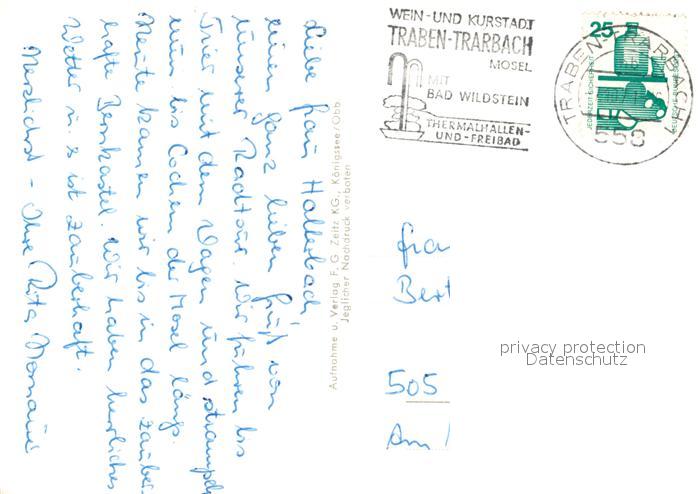 Liebe Frau Hallerbach,
einen ganz lieben Gruß von
unserer Radtour. Wir fuhren bis
Trier mit dem Wagen und strampeln
nun bis Cochem der Mosel längs.
Heute kamen wir bis in das zauber-
hafte Bernkastel. Wir haben herrliches
Wetter u. es ist zauberhaft.
Herzlichst - Ihre Rita
Aufnahme u. Verlag F. G. Zeitz KG., Königssee/Obb
Jeglicher Nachdruck verboten
WEIN- UND KURSTADT
TRABEN-TRARBACH
MOSEL
MIT
BAD WILDSTEIN
THERMALHALLEN-
UND-FREIBAD
TRABEN-TRARBACH
558
25
JEDERZEIT SICHERHEIT
Fra
Bert
505
Am
privacy protection
Datenschutz